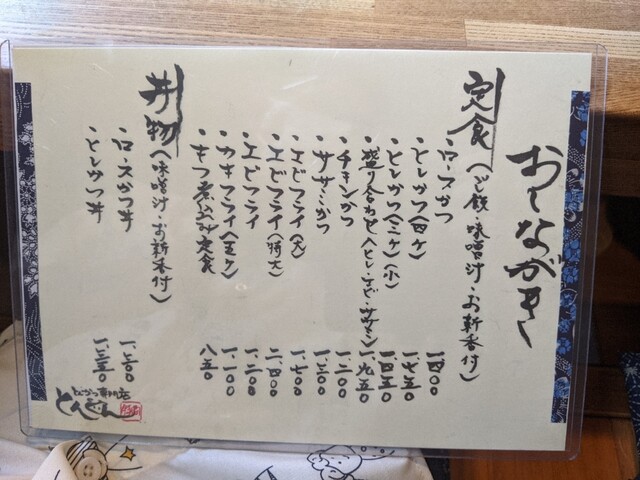 おしながき
定食（ご飯・味噌汁・お新香付）
・ロースかつ 一、四〇〇
・ヒレかつ（四ケ） 一、七五〇
・ヒレかつ（三ケ）（小） 一、四五〇
・盛り合わせ（ヒレ・エビ・ササミ） 一、九五〇
・チキンかつ 一、二〇〇
・ササミかつ 一、三〇〇
・エビフライ（大） 一、七〇〇
・エビフライ（特大） 二、四〇〇
・エビフライ 一、二〇〇
・カキフライ（五ケ） 一、一〇〇
・もつ煮込み定食 八五〇
丼物（味噌汁・お新香付）
・ロースかつ丼 一、二〇〇
・ヒレかつ丼 一、三五〇
とんかつ専門店